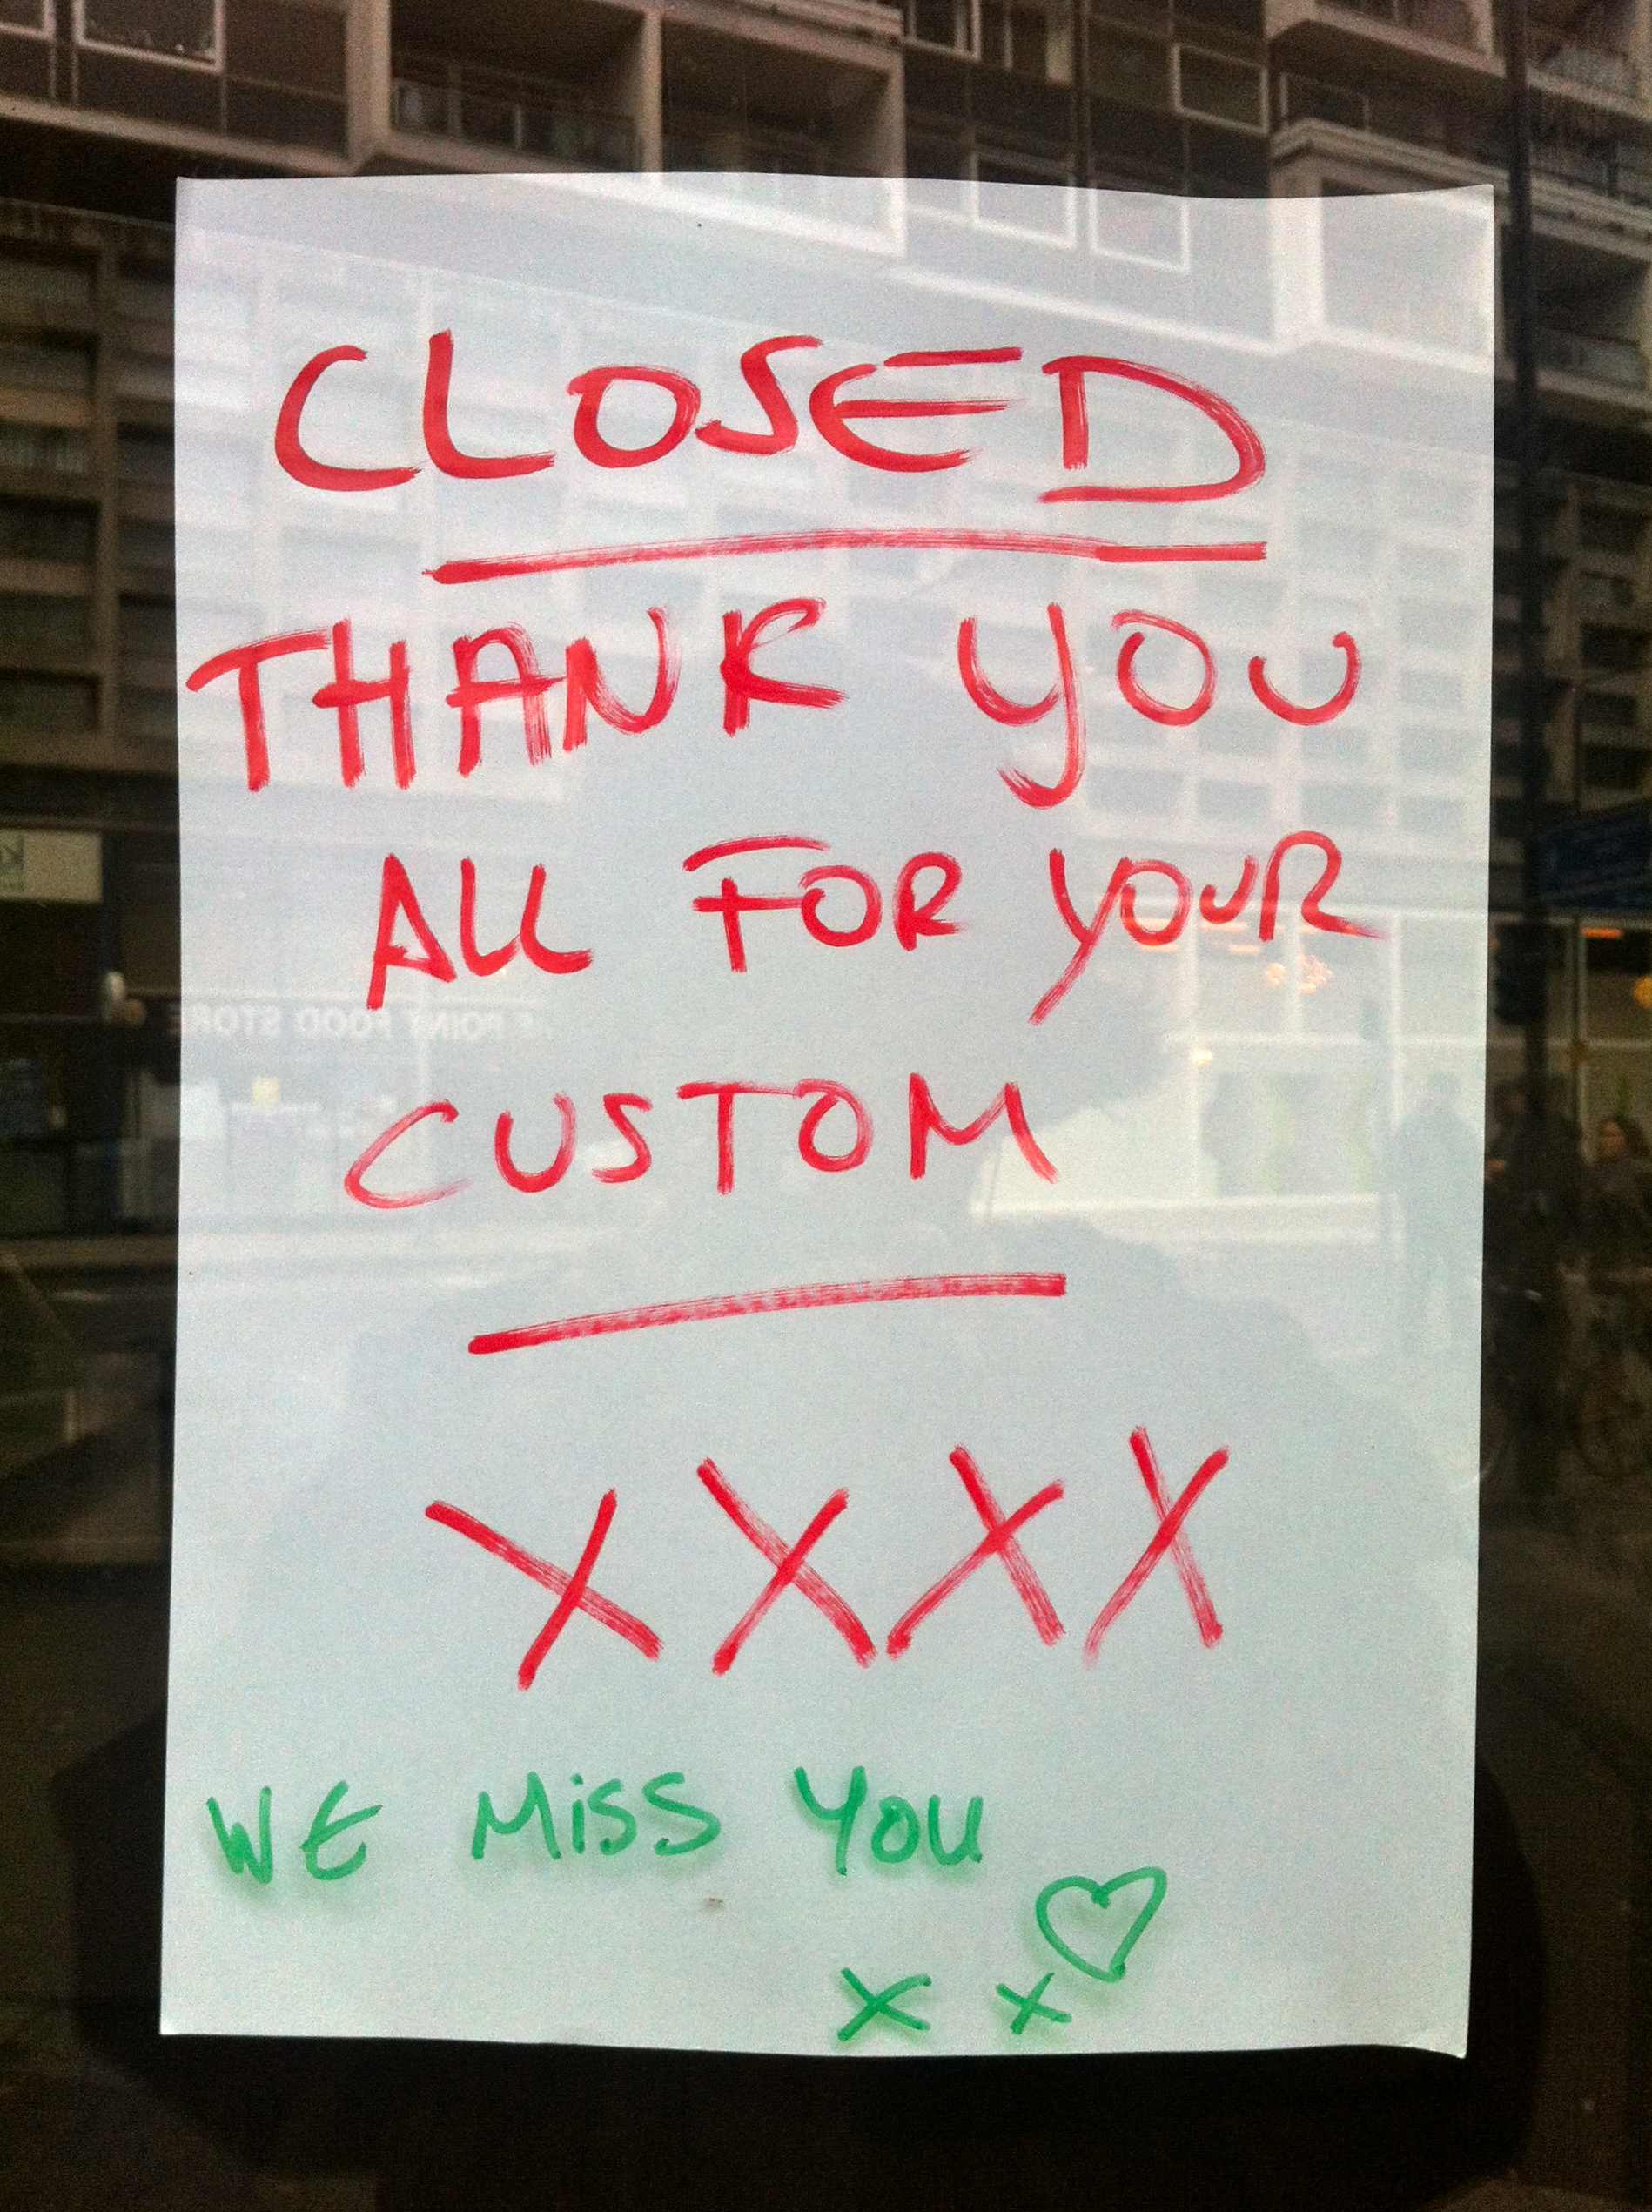 CLOSED
THANK YOU
ALL FOR YOUR
CUSTOM
XXXX
WE MiSS YOU
x x
POINT FOOD STORE